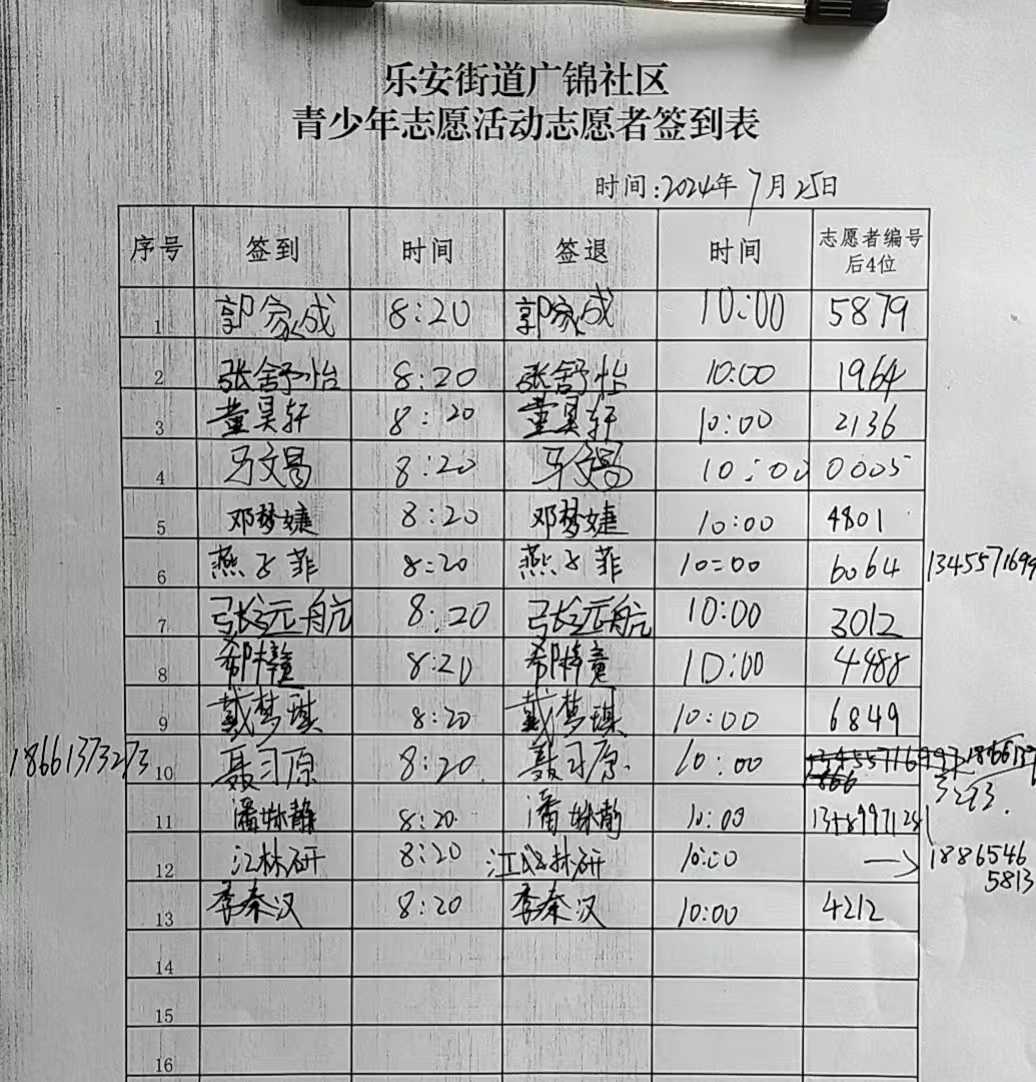 乐安街道广锦社区
青少年志愿活动志愿者签到表
时间:2024年7月25日
序号 签到 时间 签退 时间 志愿者编号后4位
1 郭家成 8:20 郭家成 10:00 5879
2 张舒怡 8:20 张舒怡 10:00 1964
3 董昊轩 8:20 董昊轩 10:00 2136
4 马文昌 8:20 马文昌 10:00 0005
5 邓梦婕 8:20 邓梦婕 10:00 4801
6 燕子菲 8:20 燕子菲 10:00 6064 1345571699
7 张远航 8:20 张远航 10:00 3012
8 8:20 10:00 4988
9 戴梦琪 8:20 戴梦琪 10:00 6849
18661373273 10 聂习原 8:20 聂习原 10:00
11 8:20 10:00
12 江林研 8:20 江林研 10:00 → 1886546
5813
13 李秦汉 8:20 李秦汉 10:00 4212
14
15
16